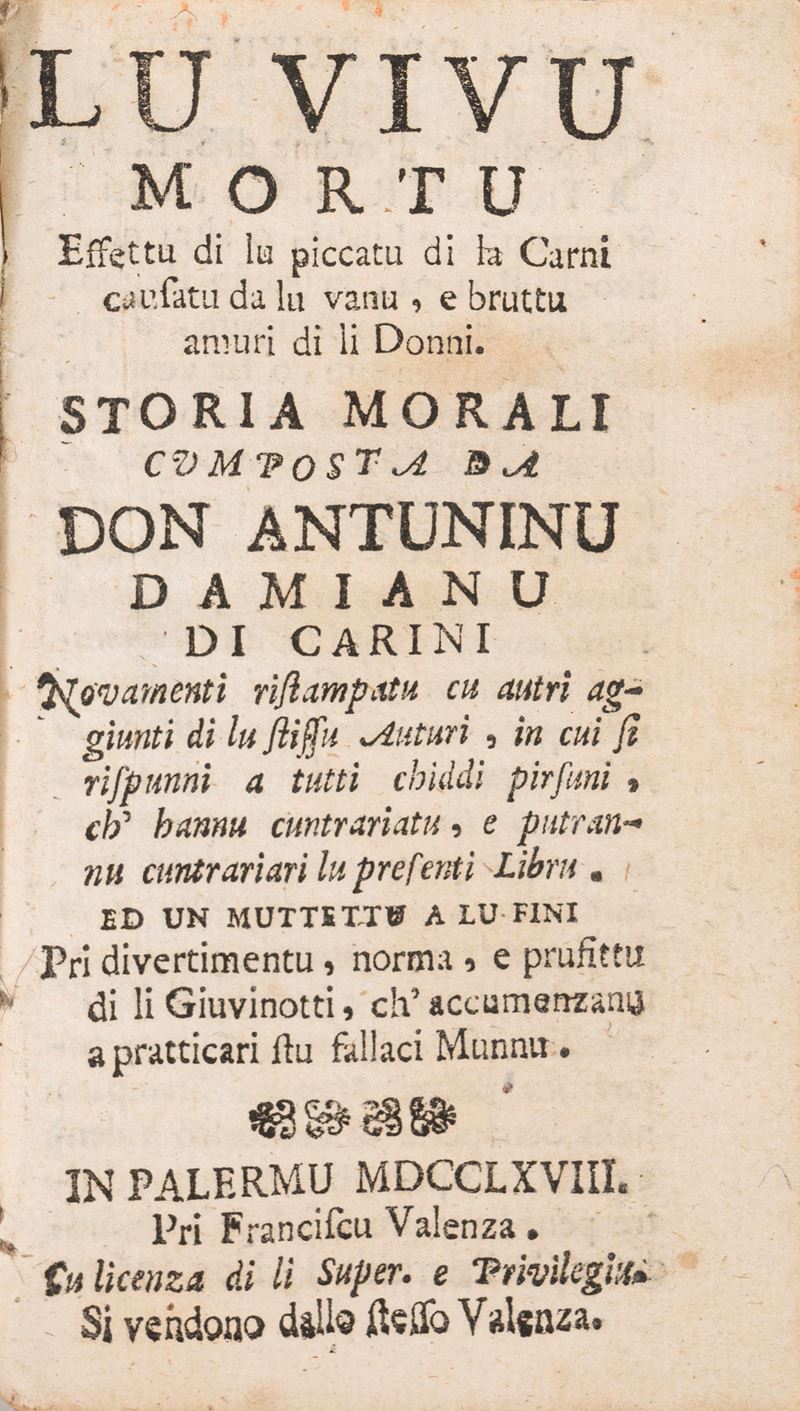 LU VIVU
MORTU
Effettu di lu piccatu di la Carni
cauſatu da lu vanu, e bruttu
amuri di li Donni.
STORIA MORALI
CVMPOSTA DA
DON ANTUNINU
DAMIANU
DI CARINI
Novamenti riſtampatu cu autri ag-
giunti di lu ſtiſſu Auturi, in cui ſi
riſpunni a tutti chiddi pirſuni,
ch' hannu cuntrariatu, e putran-
nu cuntrariari lu preſenti Libru.
ED UN MUTTETTU A LU FINI
Pri divertimentu, norma, e prufittu
di li Giuvinotti, ch' accumenzanu
a pratticari ſtu fallaci Munnu.
IN PALERMU MDCCLXVIII.
Pri Franciſcu Valenza.
Cu licenza di li Super. e Privilegiu.
Si vendono dallo ſteſſo Valenza.